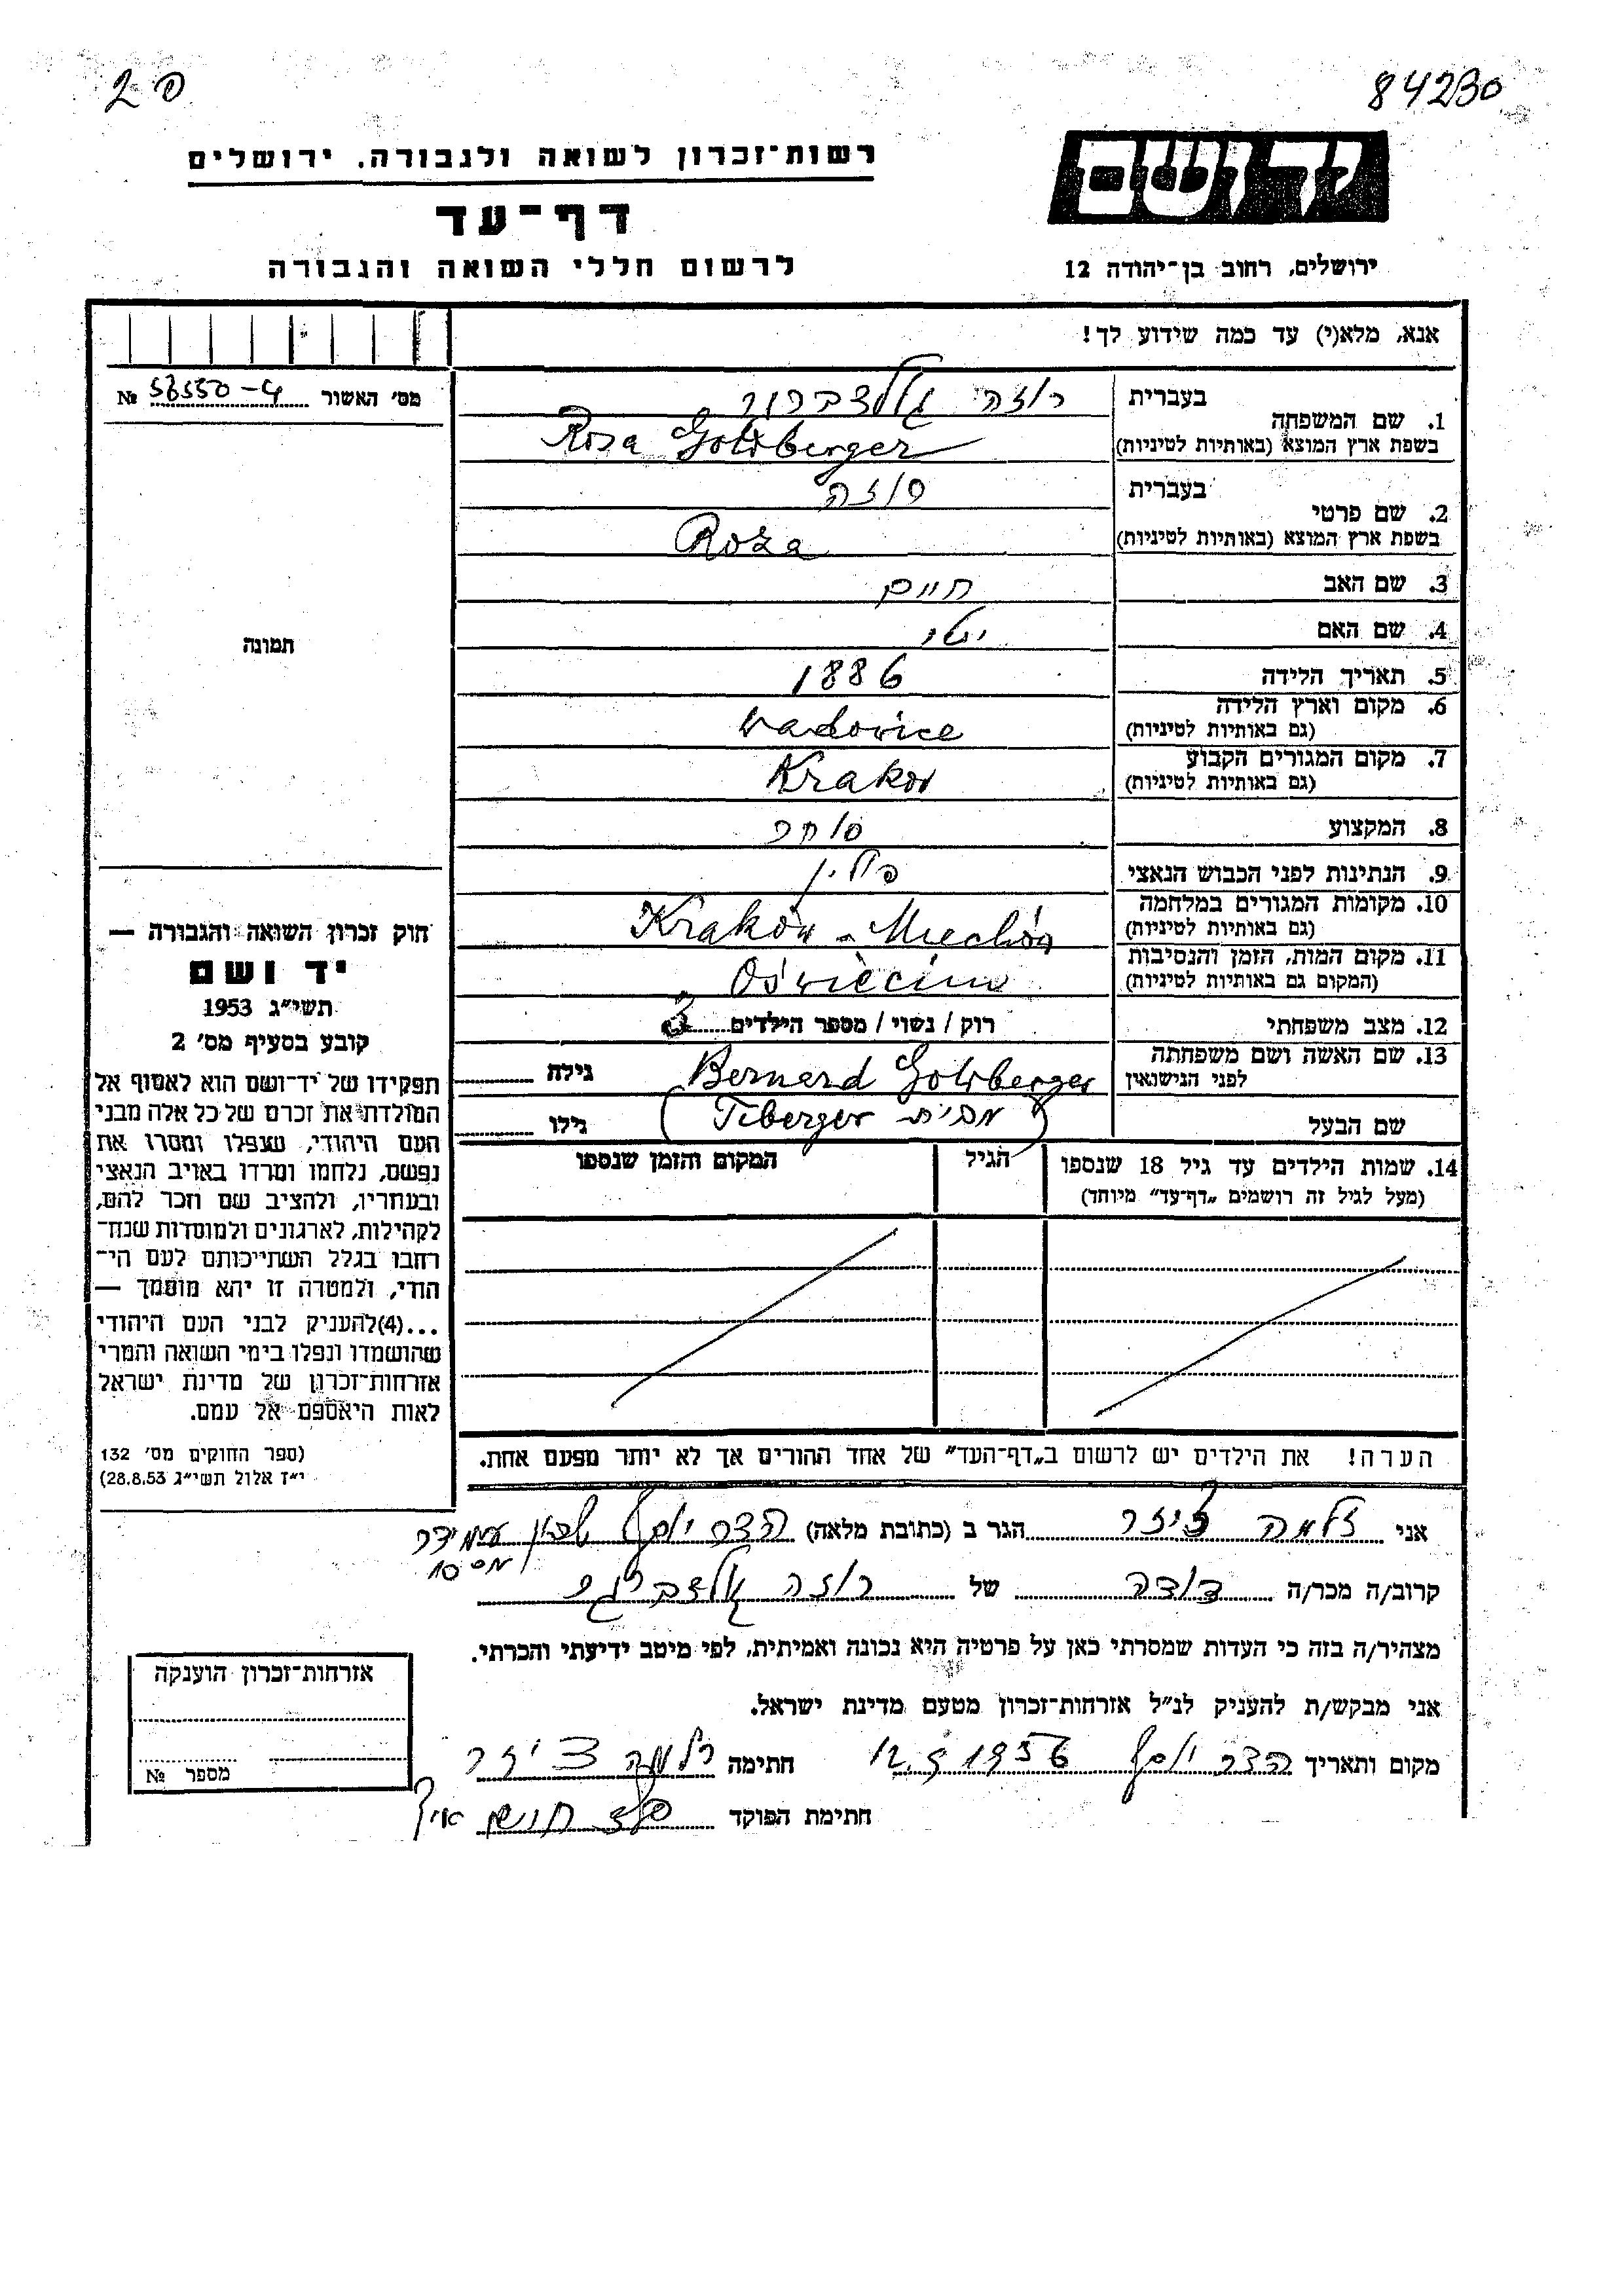 פ 2
84230
יד ושם
ירושלים, רחוב בן־יהודה 12
רשות־זכרון לשואה ולגבורה, ירושלים
דף־עד
לרשום חללי השואה והגבורה
אנא, מלא(י) עד כמה שידוע לך!
מס' האשור 56550-4 №
תמונה
חוק זכרון השואה והגבורה —
יד ושם
תשי״ג 1953
קובע בסעיף מס' 2
תפקידו של יד־ושם הוא לאסוף אל
המולדת את זכרם של כל אלה מבני
העם היהודי, שנפלו ומסרו את
נפשם, נלחמו ומרדו באויב הנאצי
ובעוזריו, ולהציב שם וזכר להם,
לקהילות, לארגונים ולמוסדות שנח־
רחבו בגלל השתייכותם לעם הי־
הודי, ולמטרה זו יהא מוסמך —
...(4)להעניק לבני העם היהודי
שהושמדו ונפלו בימי השואה והמרי
אזרחות־זכרון של מדינת ישראל
לאות היאספם אל עמם.
(ספר החוקים מס' 132
י״ז אלול תשי״ג 28.8.53)
בעברית רוזה גולדברגר
1. שם המשפחה
בשפת ארץ המוצא (באותיות לטיניות) Rosa Goldberger
בעברית רוזה
2. שם פרטי
בשפת ארץ המוצא (באותיות לטיניות) Roza
3. שם האב חיים
4. שם האם
5. תאריך הלידה 1886
6. מקום וארץ הלידה
(גם באותיות לטיניות) Wadovice
7. מקום המגורים הקבוע
(גם באותיות לטיניות) Krakov
8. המקצוע סוחר
9. הנתינות לפני הכבוש הנאצי פולין
10. מקומות המגורים במלחמה
(גם באותיות לטיניות) Kraków - Miechów
11. מקום המות, הזמן והנסיבות
(המקום גם באותיות לטיניות) Oświęcim
12. מצב משפחתי רוק / נשוי / מספר הילדים 3
13. שם האשה ושם משפחתה
לפני הנישואין Bernard Goldberger גילה
שם הבעל (מבית Tiberger) גילו
14. שמות הילדים עד גיל 18 שנספו
(מעל לגיל זה רושמים „דף־עד״ מיוחד)
הגיל
המקום והזמן שנספו
הערה! את הילדים יש לרשום ב„דף־העד״ של אחד ההורים אך לא יותר מפעם אחת.
אני זלמה הגר ב (כתובת מלאה) הדר יוסף שכון עממי
מס 10
קרוב/ה מכר/ה דודה של רוזה גולדברגר
מצהיר/ה בזה כי העדות שמסרתי כאן על פרטיה היא נכונה ואמיתית, לפי מיטב ידיעתי והכרתי.
אני מבקש/ת להעניק לנ״ל אזרחות־זכרון מטעם מדינת ישראל.
מקום ותאריך הדר יוסף 12.5.1956 חתימה
חתימת הפוקד
אזרחות־זכרון הוענקה
מספר №